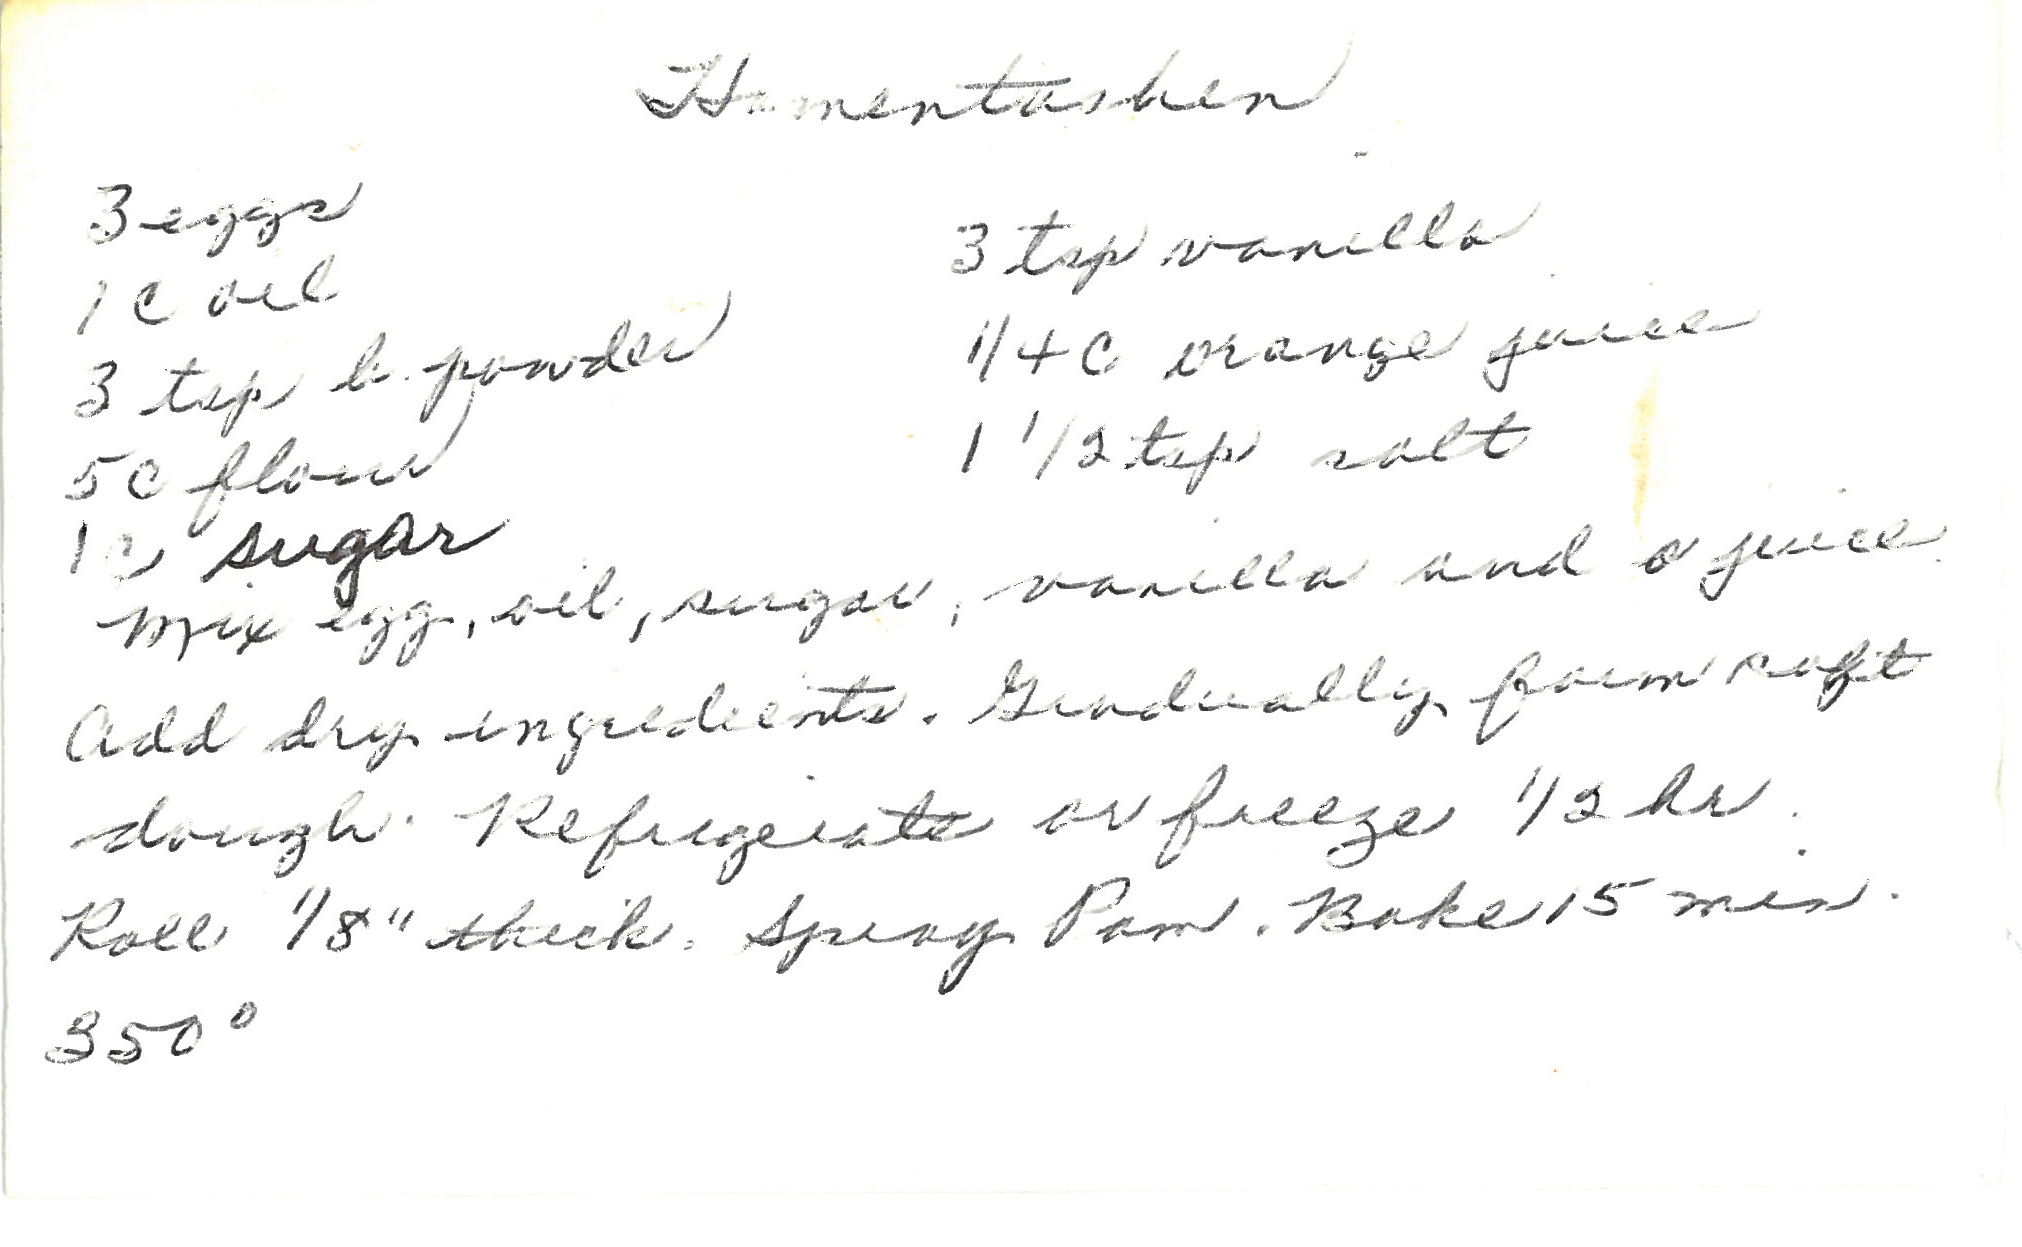 Hamentashen
3 eggs
1 C oil
3 tsp b. powder
5 C flour
1 C sugar
3 tsp vanilla
1/4 C orange juice
1 1/2 tsp salt
Mix egg, oil, sugar, vanilla and o juice.
Add dry ingredients. Gradually form soft
dough. Refrigerate or freeze 1/2 hr.
Roll 1/8" thick. Spray Pam. Bake 15 min.
350°